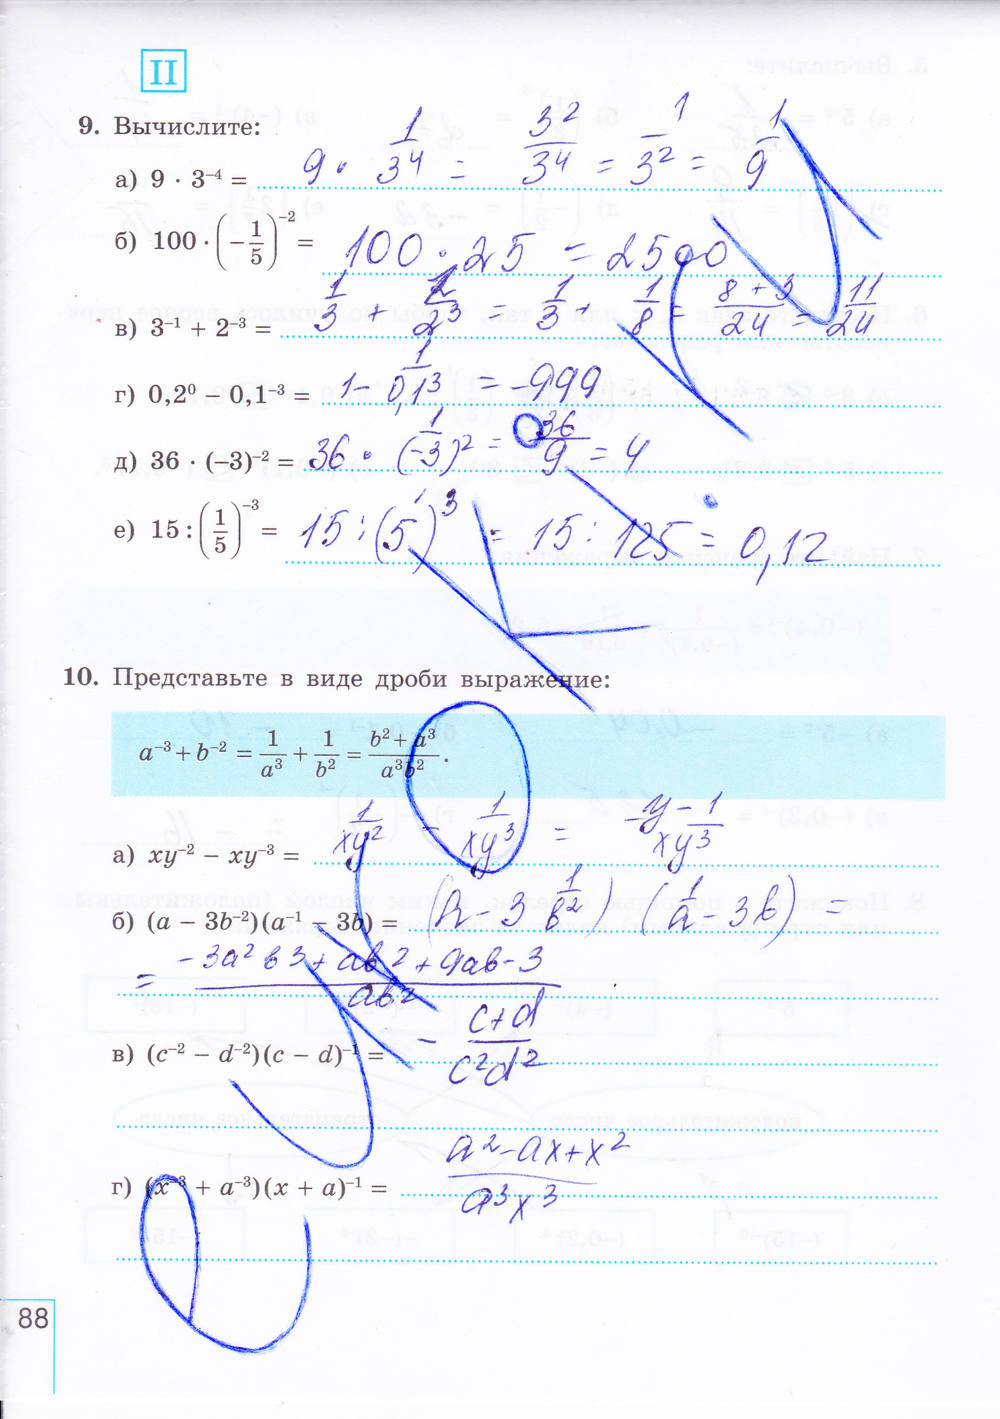 II
9. Вычислите:
а) 9 · 3⁻⁴ = 9 · 1/3⁴ = 3²/3⁴ = 1/3² = 1/9
б) 100 · (−1/5)⁻² = 100 · 25 = 2500
в) 3⁻¹ + 2⁻³ = 1/3 + 1/2³ = 1/3 + 1/8 = (8 + 3)/24 = 11/24
г) 0,2⁰ − 0,1⁻³ = 1 − 1/0,1³ = −999
д) 36 · (−3)⁻² = 36 · 1/(−3)² = 36/9 = 4
е) 15 : (1/5)⁻³ = 15 : (5)³ = 15 : 125 = 0,12
10. Представьте в виде дроби выражение:
a⁻³ + b⁻² = 1/a³ + 1/b² = (b² + a³)/(a³b²).
а) xy⁻² − xy⁻³ = 1/xy² − 1/xy³ = (y − 1)/xy³
б) (a − 3b⁻²)(a⁻¹ − 3b) = (a − 3 1/b²) (1/a − 3b) =
= (−3a²b3 + ab² + 9ab − 3)/ab²
в) (c⁻² − d⁻²)(c − d)⁻¹ = − (c + d)/(c²d²)
г) (x⁻³ + a⁻³)(x + a)⁻¹ = (a² − ax + x²)/(a³x³)
88